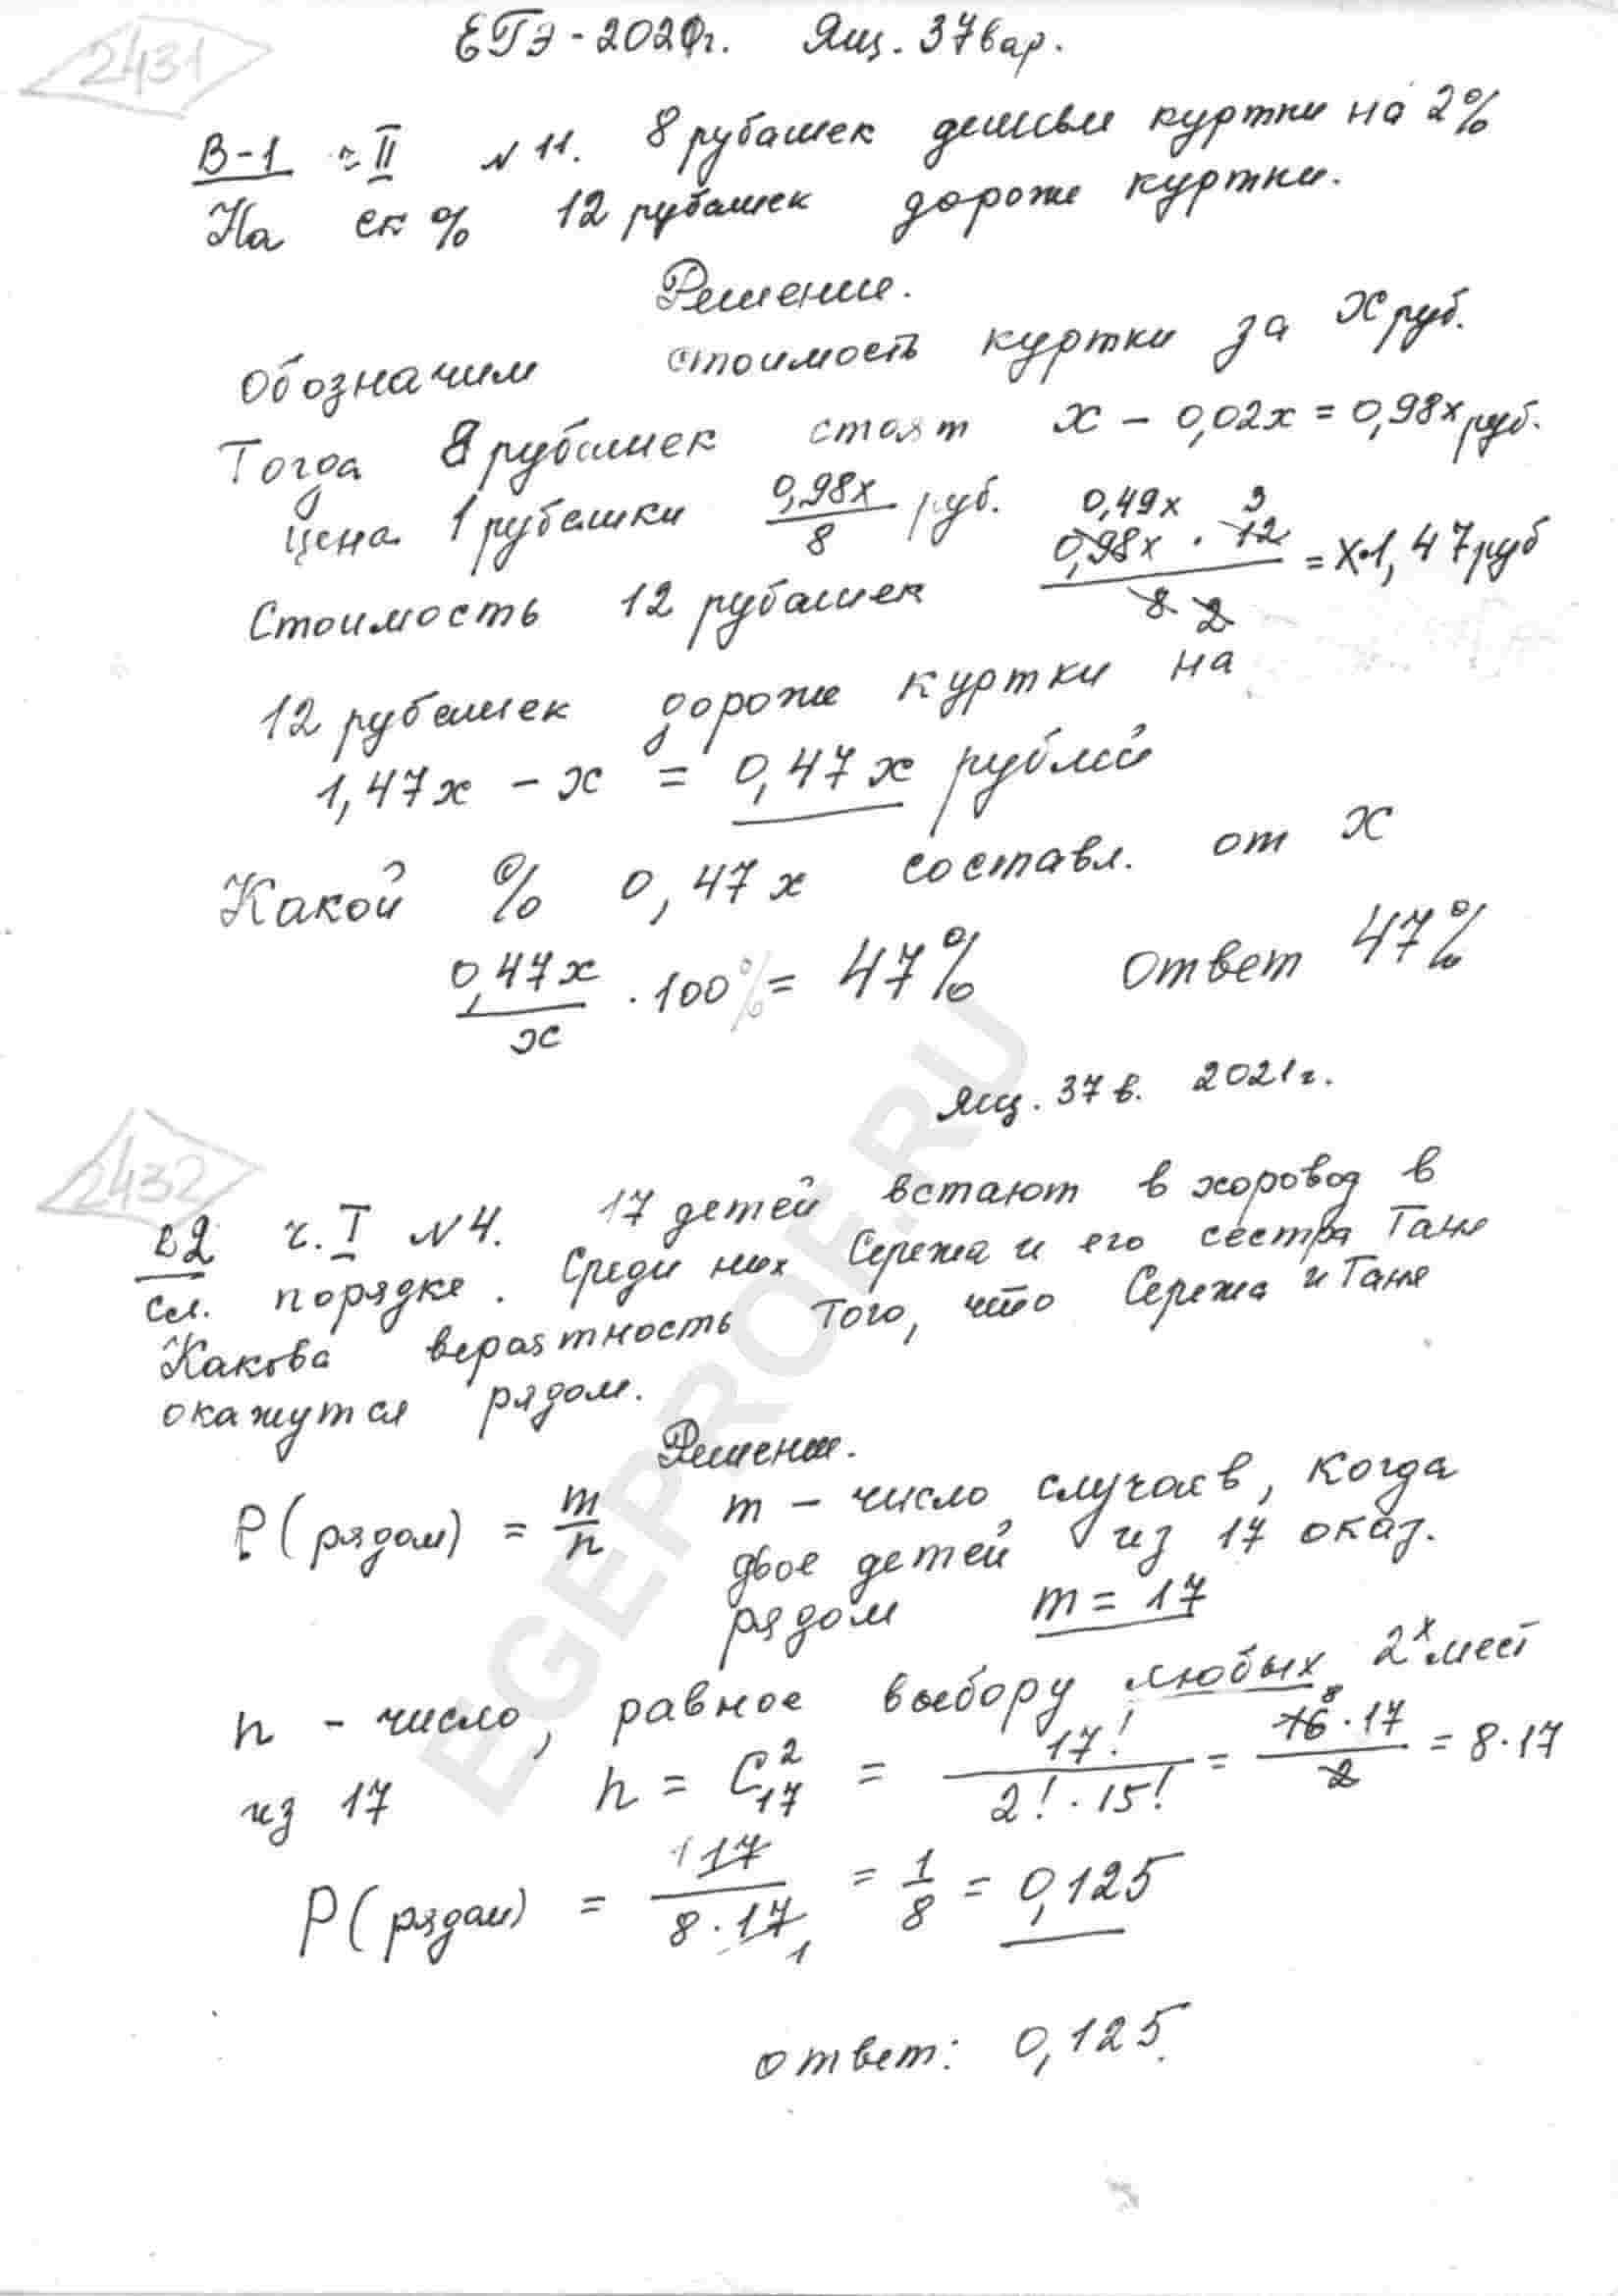 2431
ЕГЭ - 2021г. Ящ. 37 вар.
В-1 ч II № 11. 8 рубашек дешевле куртки на 2%
На ск % 12 рубашек дороже куртки.
Решение.
Обозначим стоимость куртки за x руб.
Тогда 8 рубашек стоят x - 0,02x = 0,98x руб.
цена 1 рубашки 0,98x/8 руб.
Стоимость 12 рубашек 0,98x · 12 / 8 = x·1,47 руб
0,49x 3
2
12 рубашек дороже куртки на
1,47x - x = 0,47x рублей
Какой % 0,47x составл. от x
0,47x/x · 100% = 47% Ответ 47%
Ящ. 37 в. 2021г.
2432
в2 ч. I № 4. 17 детей встают в хоровод в
сл. порядке. Среди них Сережа и его сестра Таня
Какова вероятность того, что Сережа и Таня
окажутся рядом.
Решение.
P(рядом) = m/n m - число случаев, когда
двое детей из 17 оказ.
рядом m = 17
n - число, равное выбору любых 2х мест
из 17 n = C²₁₇ = 17!/(2! · 15!) = 16 · 17/2 = 8·17
8
P(рядом) = 17/(8 · 17) = 1/8 = 0,125
1
1
ответ: 0,125
EGEPROF.RU